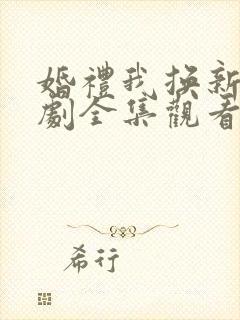 婚禮我換新
劇全集觀看
希行